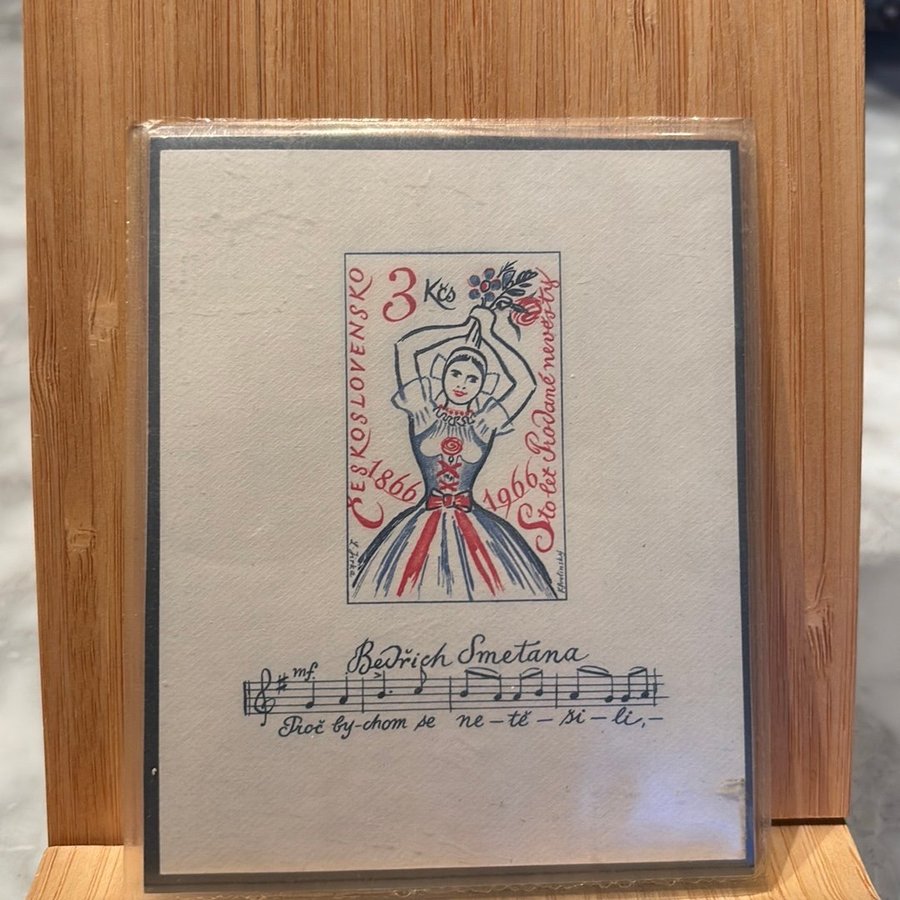 ČESKOSLOVENSKO
3 Kčs
1866
1966
Sto let Prodané nevěsty
Bedřich Smetana
mf
Proč by-chom se ne-tě-ši-li,-